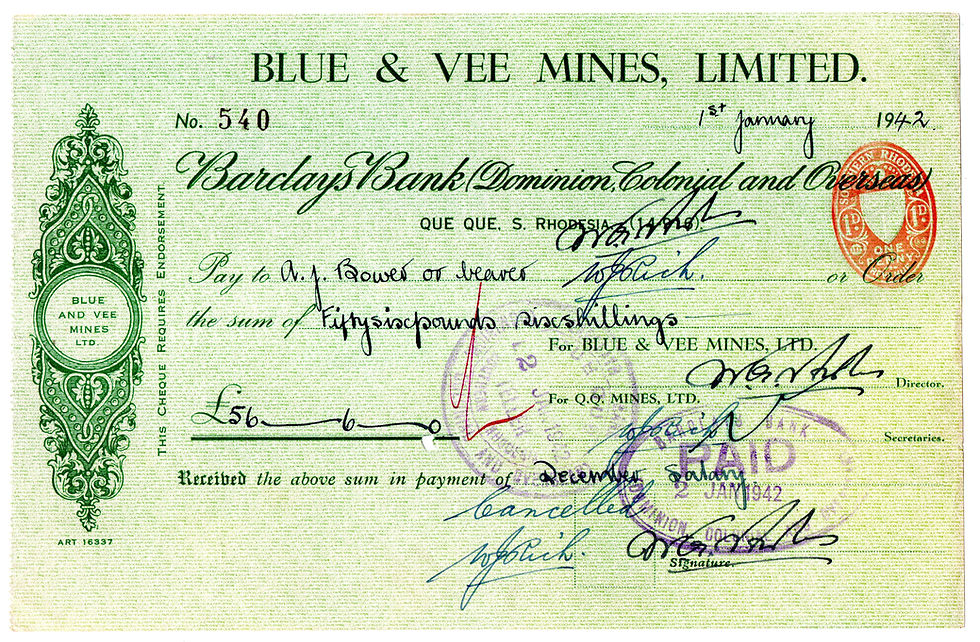 BLUE & VEE MINES, LIMITED.
No. 540
1st January 1942.
Barclays Bank (Dominion, Colonial and Overseas)
QUE QUE, S. RHODESIA.
SOUTHERN RHODESIA
1D 1D
ONE
PENNY
Pay to A. J. Bower or bearer or Order
W J Rich.
the sum of Fiftysixpounds sixshillings
For BLUE & VEE MINES, LTD.
Director.
£56 — 6 — 0
For Q.Q. MINES, LTD.
W J Rich
Secretaries.
Received the above sum in payment of December Salary
Cancelled
W J Rich.
Signature.
BANK
PAID
2 JAN 1942
DOMINION
THIS CHEQUE REQUIRES ENDORSEMENT.
BLUE
AND VEE
MINES
LTD.
ART 16337